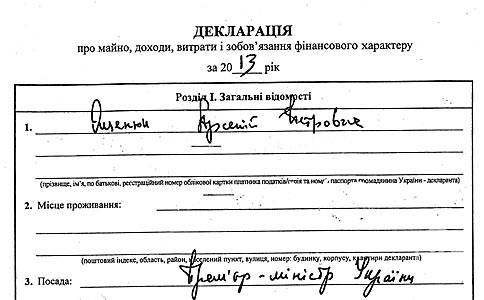 ДЕКЛАРАЦІЯ
про майно, доходи, витрати і зобов'язання фінансового характеру
за 2013 рік
Розділ І. Загальні відомості
1. Яценюк Арсеній Петрович
(прізвище, ім'я, по батькові, реєстраційний номер облікової картки платника податків/серія та номер паспорта громадянина України - декларанта)
2. Місце проживання:
(поштовий індекс, область, район, населений пункт, вулиця, номер: будинку, корпусу, квартири декларанта)
3. Посада: Прем'єр-міністр України